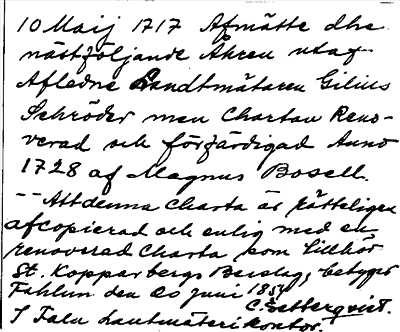 10 Maij 1717 Afmätte dhe
nästföljande Åhren utaf
Afledne Landtmätaren Gilius
Schröder men Chartan Reno-
verad och förfärdigad Anno
1728 af Magnus Bosell.
-- Att denna Charta är rätteligen
afcopierad och enlig med en
renoverad Charta som tillhör
St. Kopparbergs Bergslag, betygar
Fahlun den 20 Juni 1854
C. Zetterqvist.
I Falu Lantmäterikontor.